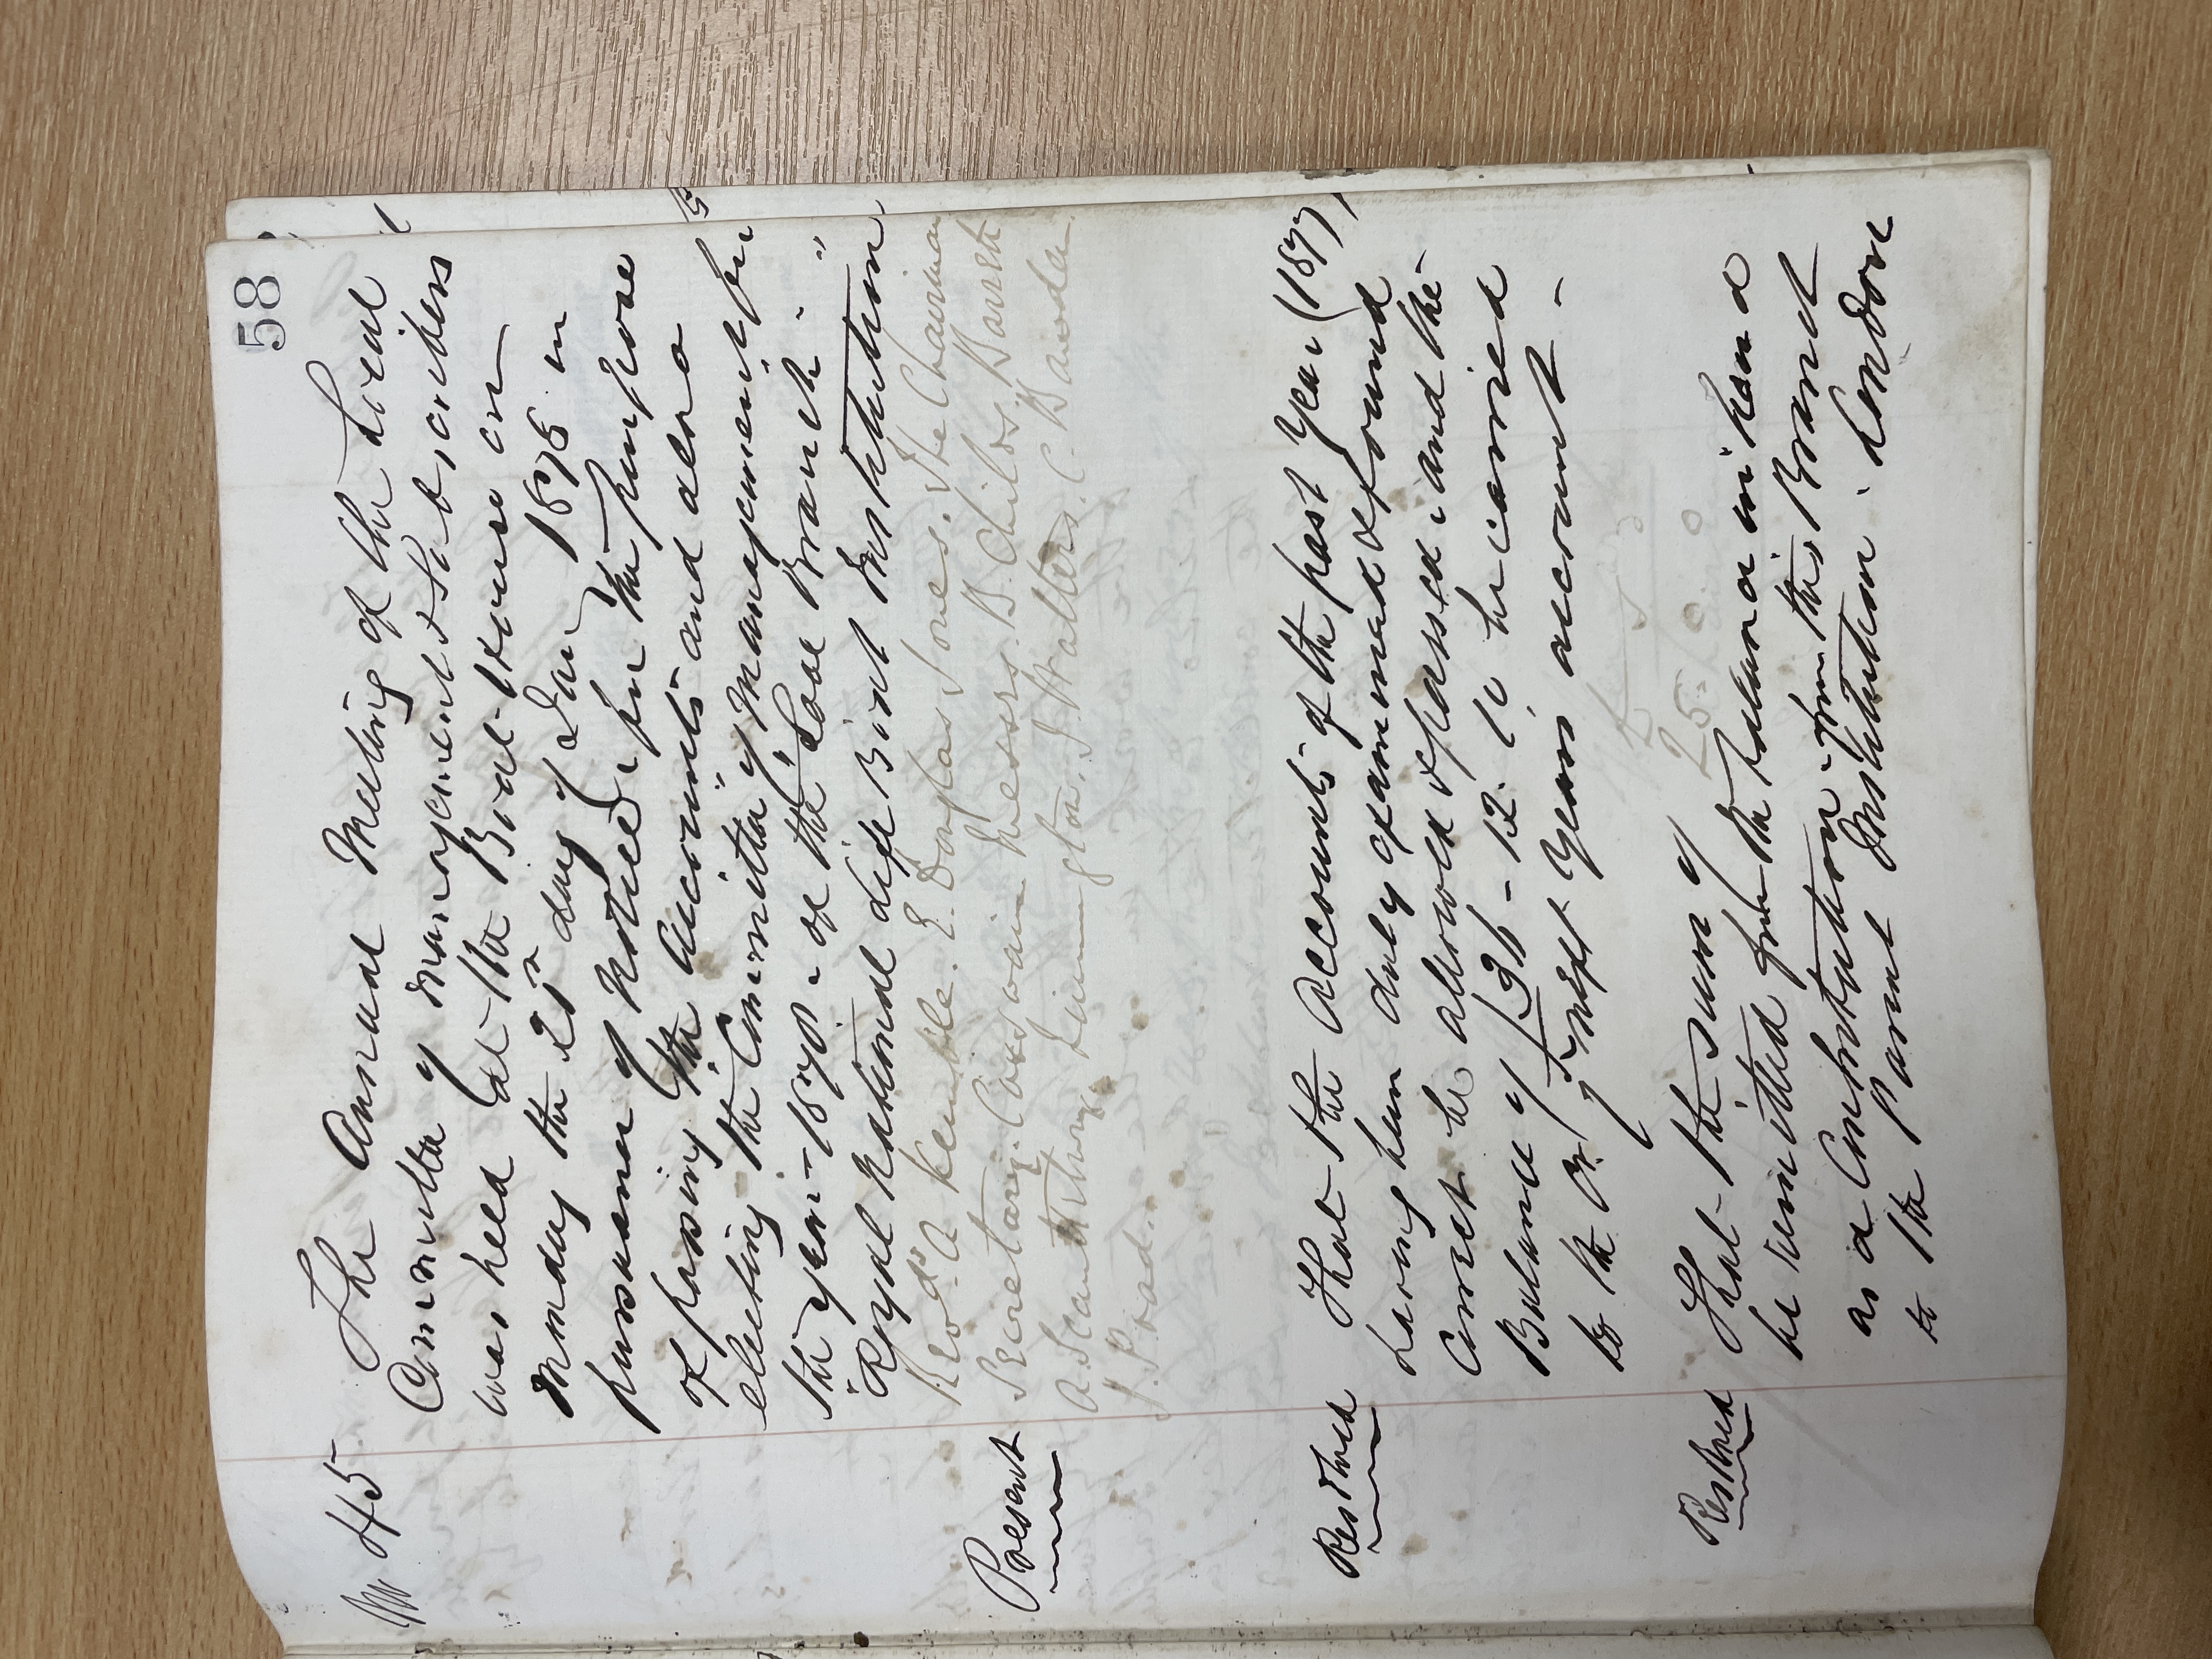 58
No 45
The Annual Meeting of the Local
Committee of Management & Subscribers
was held at the Boat-House on
Monday the 21st day of Jany 1878 in
pursuance of Notice, for the purpose
of passing the Accounts and also
electing the Committee of Management for
the year - 1878. of the "Looe Branch"
"Royal National Life Boat Institution"
Present
Revd. A Kemble. E. Douglas Jones. The Chairman
Secretary. Messrs. B. Childs. Barrett
A. Scantlebury. J. Walters. C.
J. Toad.
Resolved
That the Accounts of the past Year (1877)
having been duly examined & found
Correct be allowed & passed, and the
Balance of £36-12. to be carried
to the Cr of next Years account -
£ s d
25. 0. 0
Resolved
That the sum of
be remitted from the balance in hand
as a Contribution from this Branch
to the Parent Institution. London